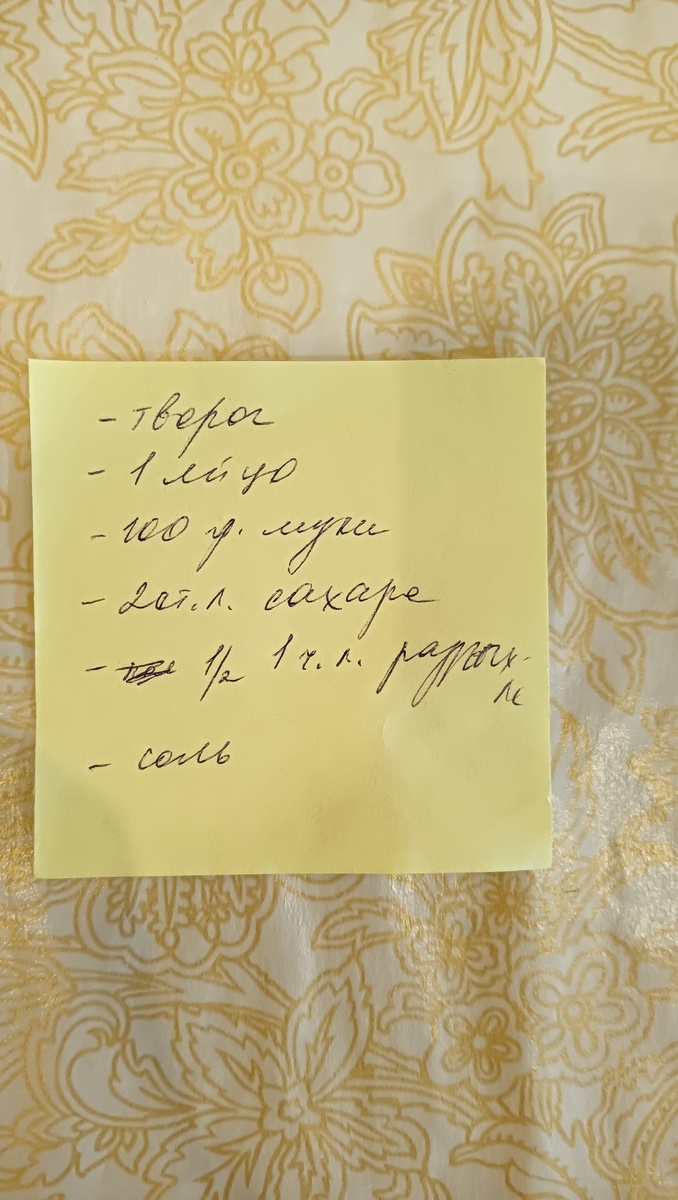 - творог
- 1 яйцо
- 100 гр. муки
- 2 ст. л. сахара
- 1/2 1 ч. л. разрых-
ле
- соль